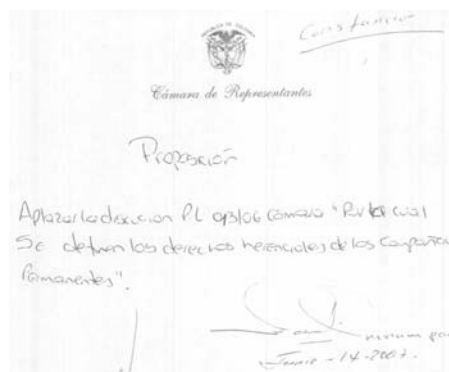 Constancia
REPÚBLICA DE COLOMBIA
Cámara de Representantes
Proposición
Aplazar la discusion PL 013/06 Cámara "Por la cual
Se definen los derechos herenciales de los Compañeros
Permanentes".
Junio - 14 - 2007.